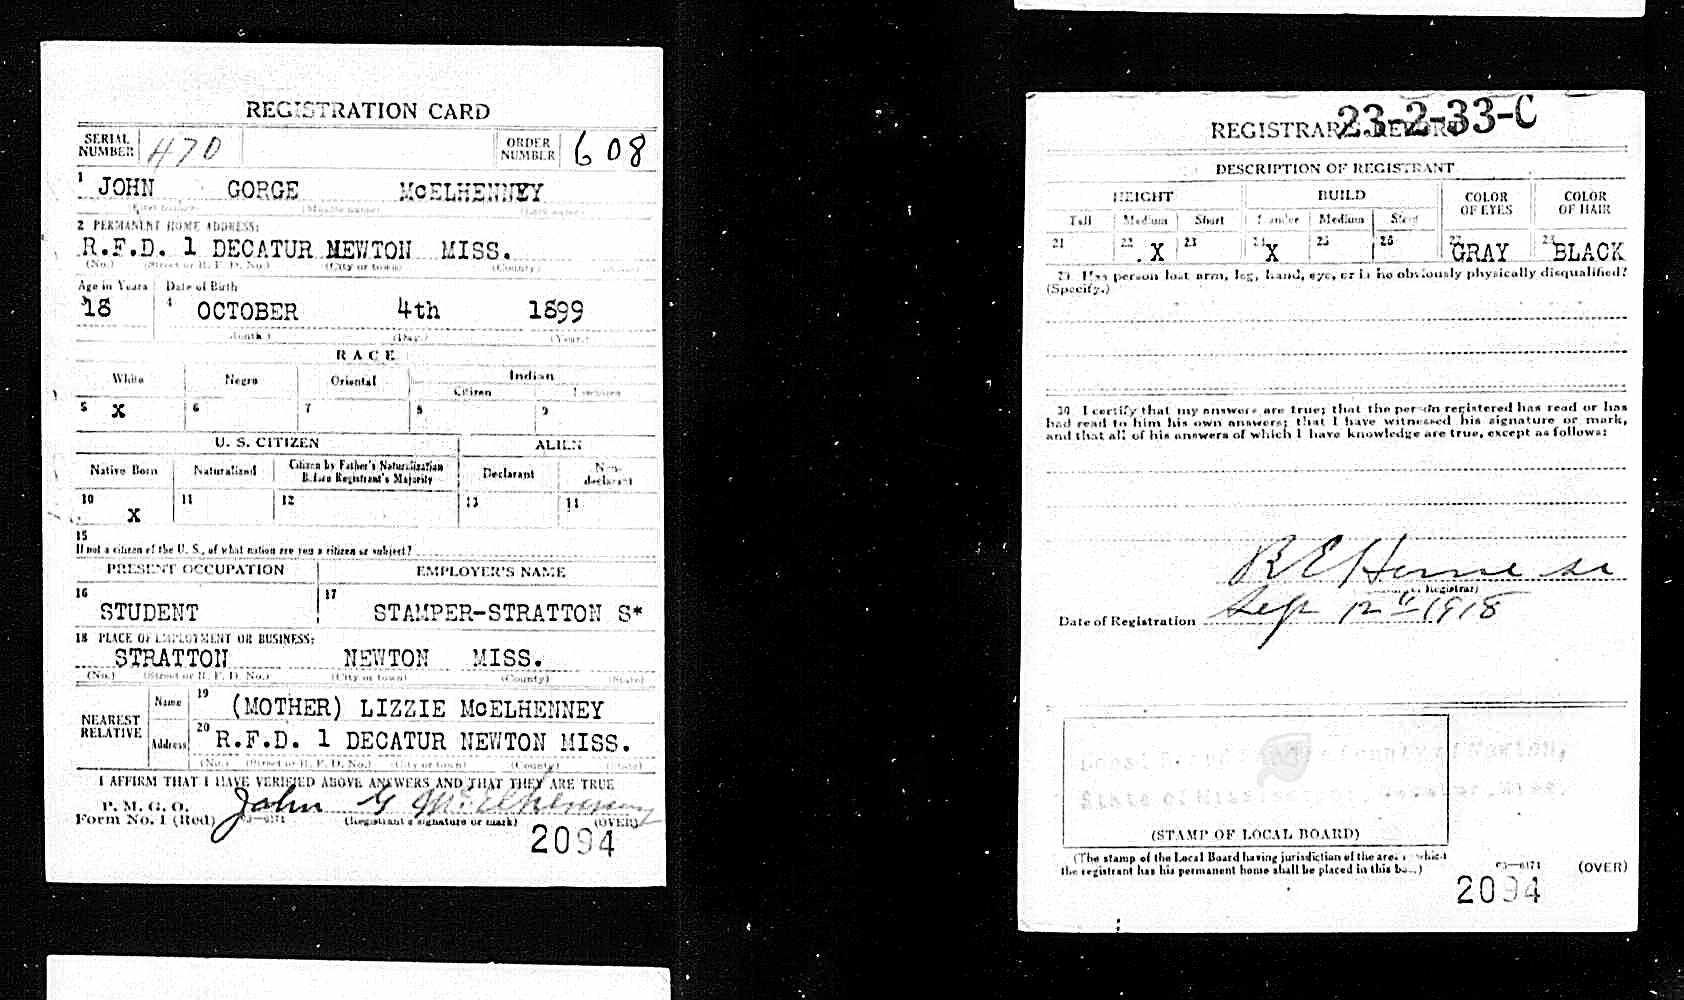 REGISTRATION CARD
SERIAL NUMBER 470 ORDER NUMBER 608
1 JOHN GORGE McELHENNEY
(First name) (Middle name) (Last name)
2 PERMANENT HOME ADDRESS:
R.F.D. 1 DECATUR NEWTON MISS.
(No.) (Street or R. F. D. No.) (City or town) (County) (State)
Age in Years Date of Birth
3 18 4 OCTOBER 4th 1899
(Month.) (Day.) (Year.)
RACE
White Negro Oriental Indian
Citizen
5 X 6 7 8 9
U. S. CITIZEN ALIEN
Native Born Naturalized Citizen by Father's Naturalization Before Registrant's Majority Declarant Non-declarant
10 X 11 12 13 14
15
If not a citizen of the U. S., of what nation are you a citizen or subject?
PRESENT OCCUPATION EMPLOYER'S NAME
16 STUDENT 17 STAMPER-STRATTON S*
18 PLACE OF EMPLOYMENT OR BUSINESS:
STRATTON NEWTON MISS.
(No.) (Street or R. F. D. No.) (City or town) (County) (State)
NEAREST RELATIVE Name 19 (MOTHER) LIZZIE McELHENNEY
Address 20 R.F.D. 1 DECATUR NEWTON MISS.
(No.) (Street or R. F. D. No.) (City or town) (County) (State)
I AFFIRM THAT I HAVE VERIFIED ABOVE ANSWERS AND THAT THEY ARE TRUE
P. M. G. O.
Form No. 1 (Red) 03—6171 John G McElhenney
(Registrant's signature or mark) (OVER)
2094
23-2-33-C
REGISTRAR'S REPORT
DESCRIPTION OF REGISTRANT
HEIGHT BUILD COLOR OF EYES COLOR OF HAIR
Tall Medium Short Slender Medium Stout
21 22 X 23 24 X 25 26 27 GRAY 28 BLACK
29 Has person lost arm, leg, hand, eye, or is he obviously physically disqualified?
(Specify.)
30 I certify that my answers are true; that the person registered has read or has
had read to him his own answers; that I have witnessed his signature or mark,
and that all of his answers of which I have knowledge are true, except as follows:
R E Horne Sr
Registrar)
Date of Registration Sep 12th 1918
Local Board County of Newton,
State of Mississippi, Decatur, Miss.
(STAMP OF LOCAL BOARD)
(The stamp of the Local Board having jurisdiction of the area in which
the registrant has his permanent home shall be placed in this box.)
03—6171 (OVER)
2094